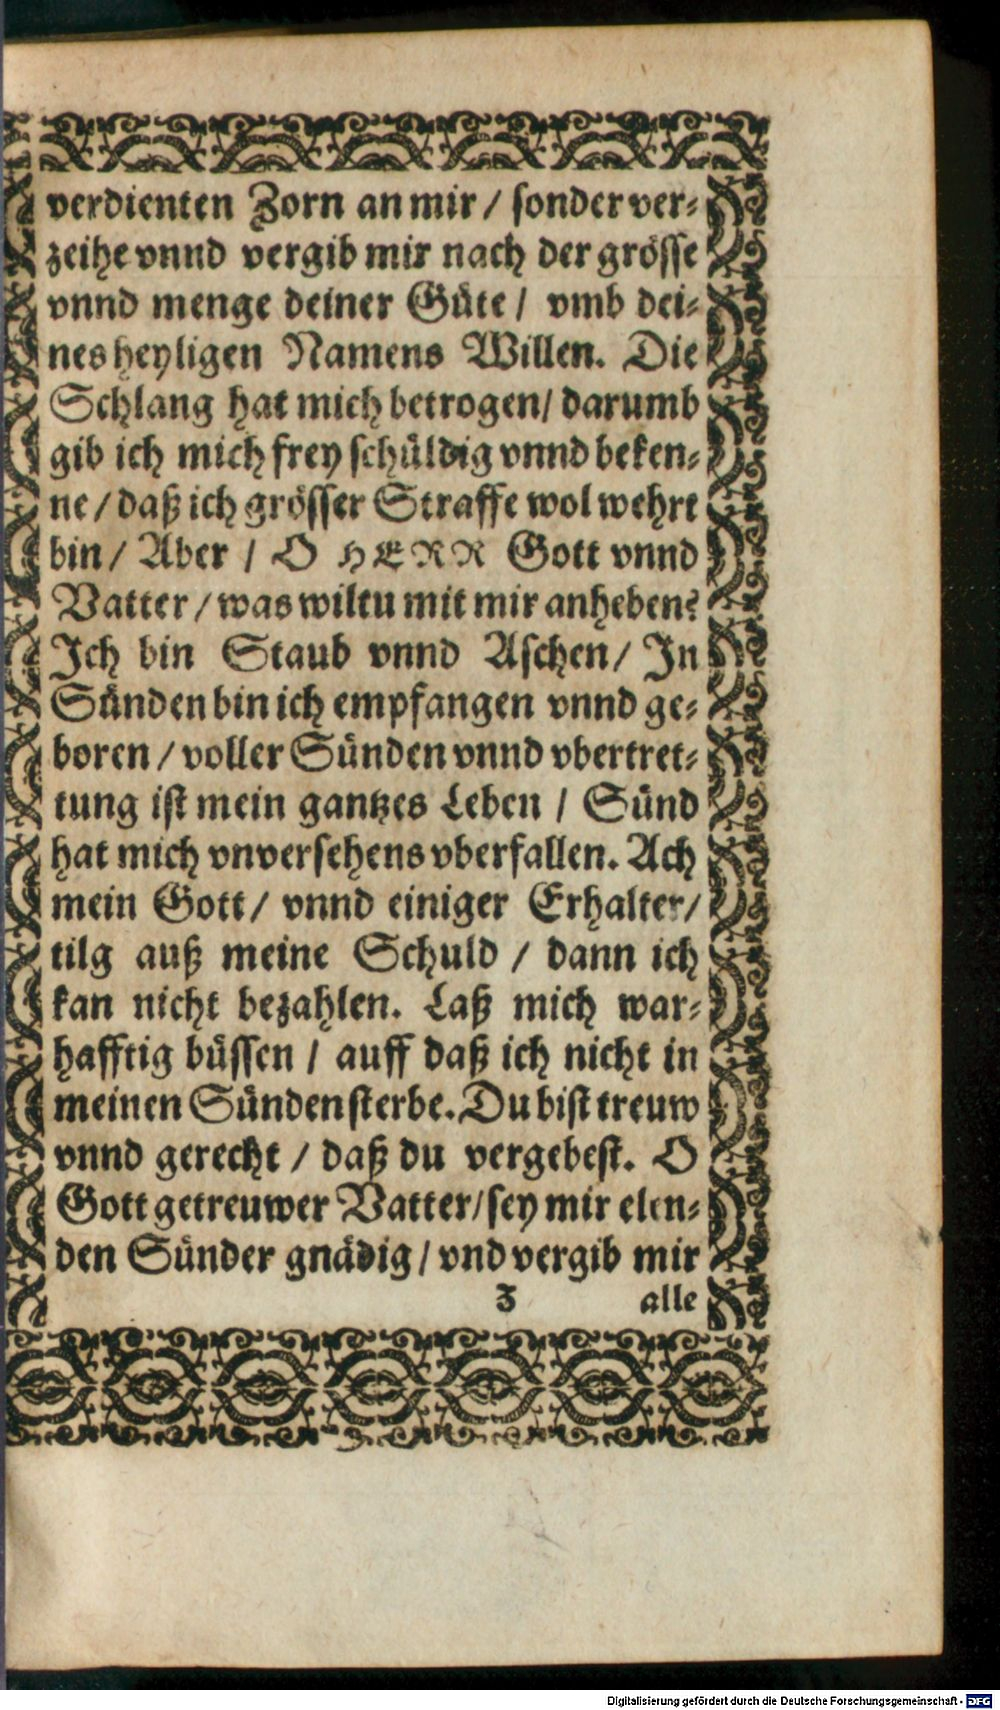 verdienten Zorn an mir / sonder ver⸗
zeihe vnnd vergib mir nach der grösse
vnnd menge deiner Güte / vmb dei⸗
nes heyligen Namens Willen. Die
Schlang hat mich betrogen / darumb
gib ich mich frey schüldig vnnd beken⸗
ne / daß ich grösser Straffe wol wehrt
bin / Aber / O HERR Gott vnnd
Vatter / was wiltu mit mir anheben?
Ich bin Staub vnnd Aschen / In
Sünden bin ich empfangen vnnd ge⸗
boren / voller Sünden vnnd vbertret⸗
tung ist mein gantzes Leben / Sünd
hat mich vnversehens vberfallen. Ach
mein Gott / vnnd einiger Erhalter /
tilg auß meine Schuld / dann ich
kan nicht bezahlen. Laß mich war⸗
hafftig büssen / auff daß ich nicht in
meinen Sünden sterbe. Du bist treuw
vnnd gerecht / daß du vergebest. O
Gott getreuwer Vatter / sey mir elen⸗
den Sünder gnädig / vnd vergib mir
3 alle
Digitalisierung gefördert durch die Deutsche Forschungsgemeinschaft - DFG